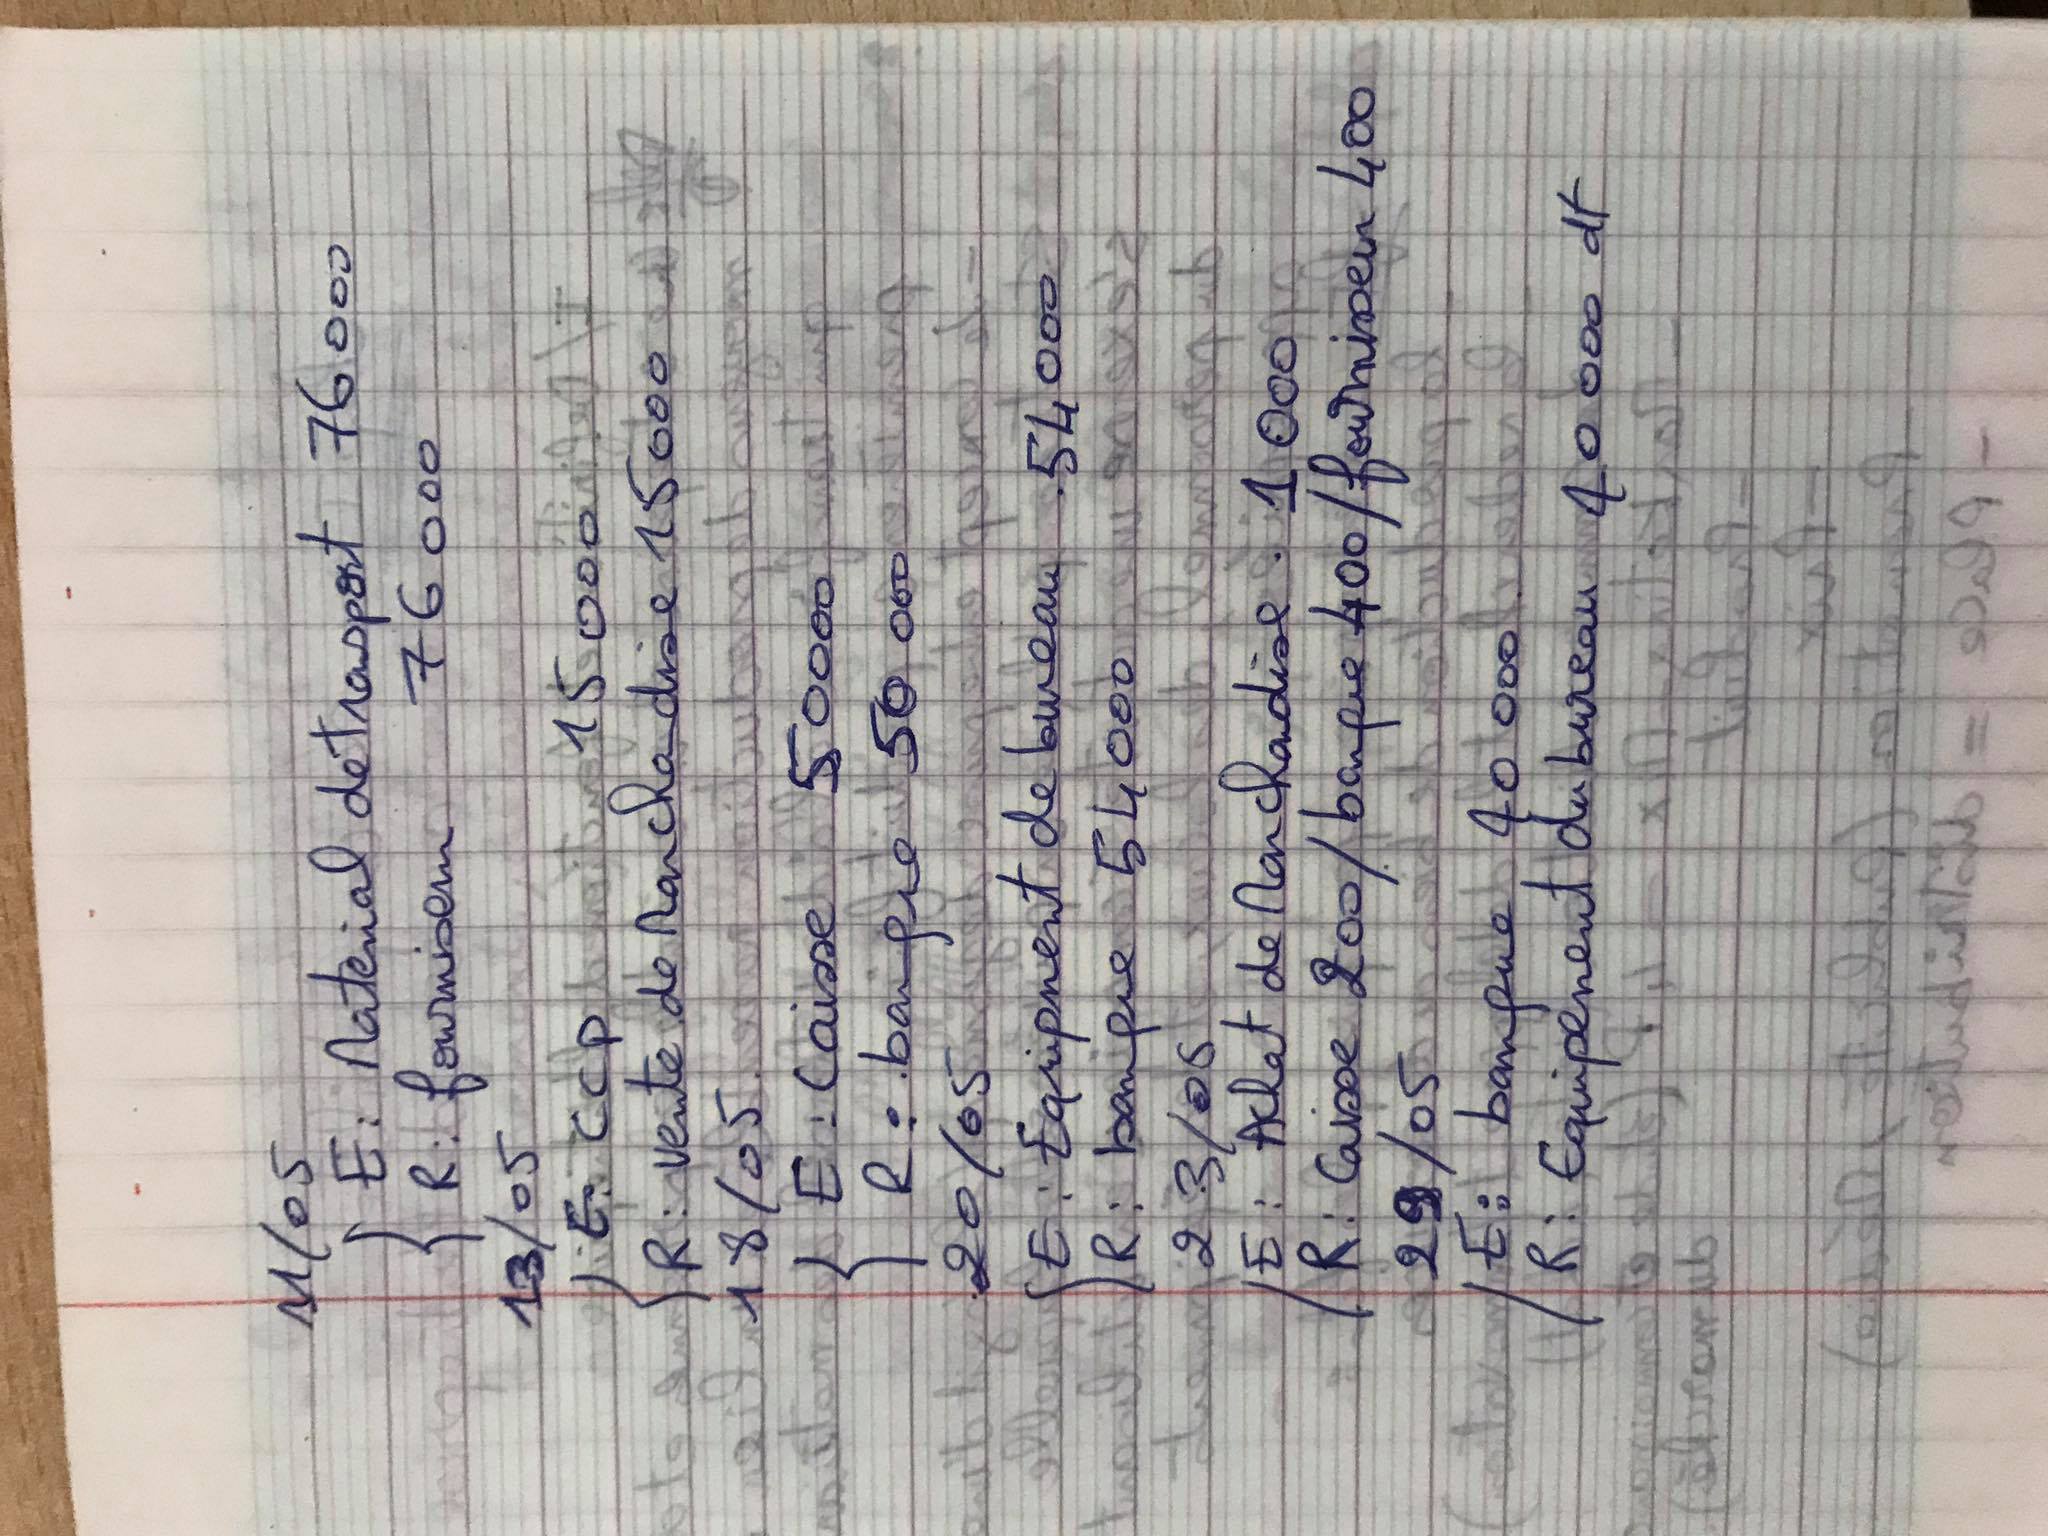 11/05
E: Material de trasport 76000
R: fournisem 76000
13/05
E: CCP 15000
R: vente de Marchadise 15000
18/05
E: Caisse 50000
R: banque 50 000
20/05
E: Equipment de bureau 54000
R: banque 54000
23/05
E: Achat de Marchadise 1000
R: Caisse 200/banque 400/fournissem 400
/05
E: banque 40 000
R: Equipement du bureau 40 000 dt